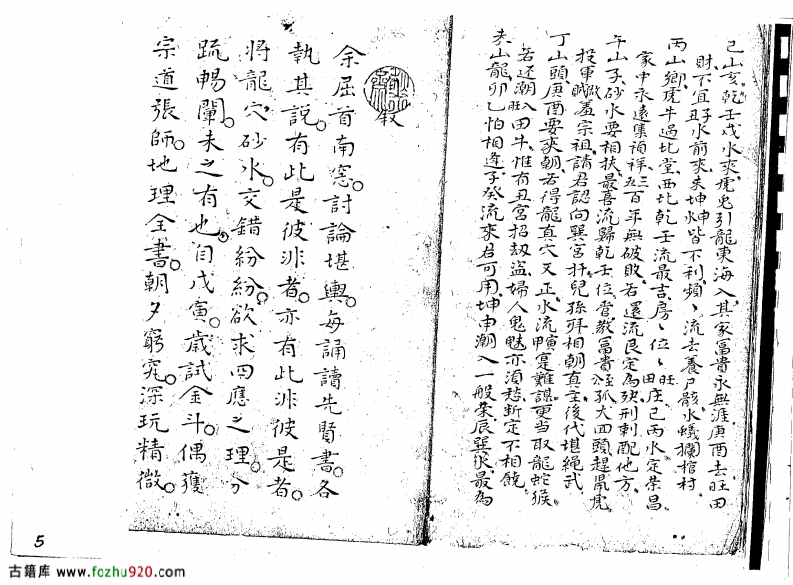 己山亥乾壬戌水來虎兔引龍東海入其家富貴永無涯庚酉去旺田
財不宜子丑水前來未坤坤火皆不利頻頻流去養尸骸水蟻攔棺材
丙山鄉虎牛過北堂西北乾壬流最吉房房位位旺田庄己丙水定榮昌
家中永遠集禎祥三百年無破敗若還流艮定為殃刑剌配他方
午山子砂水要相扶最喜流歸乾壬位管教富貴孤大四頭趕鼠虎
投軍賊羞宗祖請君認向巽宮扦兒孫拜相朝真主後代堪繩武
丁山頭庚酉要來朝若得龍真穴又正水流甲寅是難謀更當取龍蛇猴
若还潮入旺田牛惟有丑宮招劫盜婦人鬼魅亦須愁斷定不相饒
未山龍卯乙怕相逢子癸流來君可用坤申潮入一般榮辰巽最為
敘
余屈首南窓討論堪輿每誦讀先賢書各
執其說有此是彼非者亦有此非彼是者
將龍穴砂水交錯紛紛欲求四應之理分
疏暢闡未之有也自戊寅歲試金斗偶獲
宗道張師地理全書朝夕窮究深玩精微
5
古籍库 www.fozhu920.com